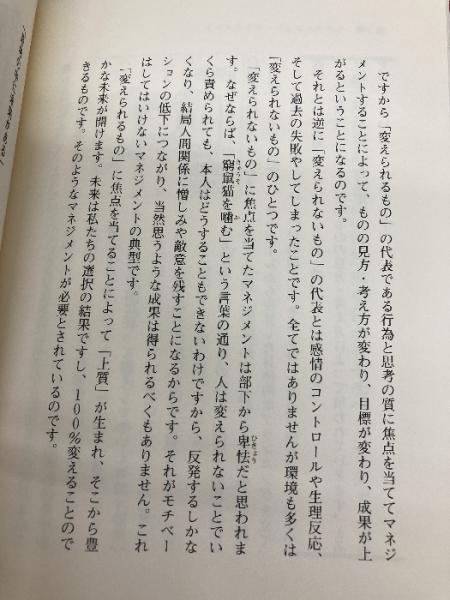 ですから「変えられるもの」の代表である行為と思考の質に焦点を当ててマネジ
メントすることによって、ものの見方・考え方が変わり、目標が変わり、成果が上
がるということになるのです。
それとは逆に「変えられないもの」の代表とは感情のコントロールや生理反応、
そして過去の失敗やしてしまったことです。全てではありませんが環境も多くは
「変えられないもの」のひとつです。
「変えられないもの」に焦点を当てたマネジメントは部下から卑怯だと思われま
す。なぜならば、「窮鼠猫を噛む」という言葉の通り、人は変えられないことでい
くら責められても、本人はどうすることもできないわけですから、反発するしかな
くなり、結局人間関係に憎しみや敵意を残すことになるからです。それがモチベー
ションの低下につながり、当然思うような成果は得られるべくもありません。これ
はしてはいけないマネジメントの典型です。
「変えられるもの」に焦点を当てることによって「上質」が生まれ、そこから豊
かな未来が開けます。未来は私たちの選択の結果ですし、100％変えることので
きるものです。そのようなマネジメントが必要とされているのです。